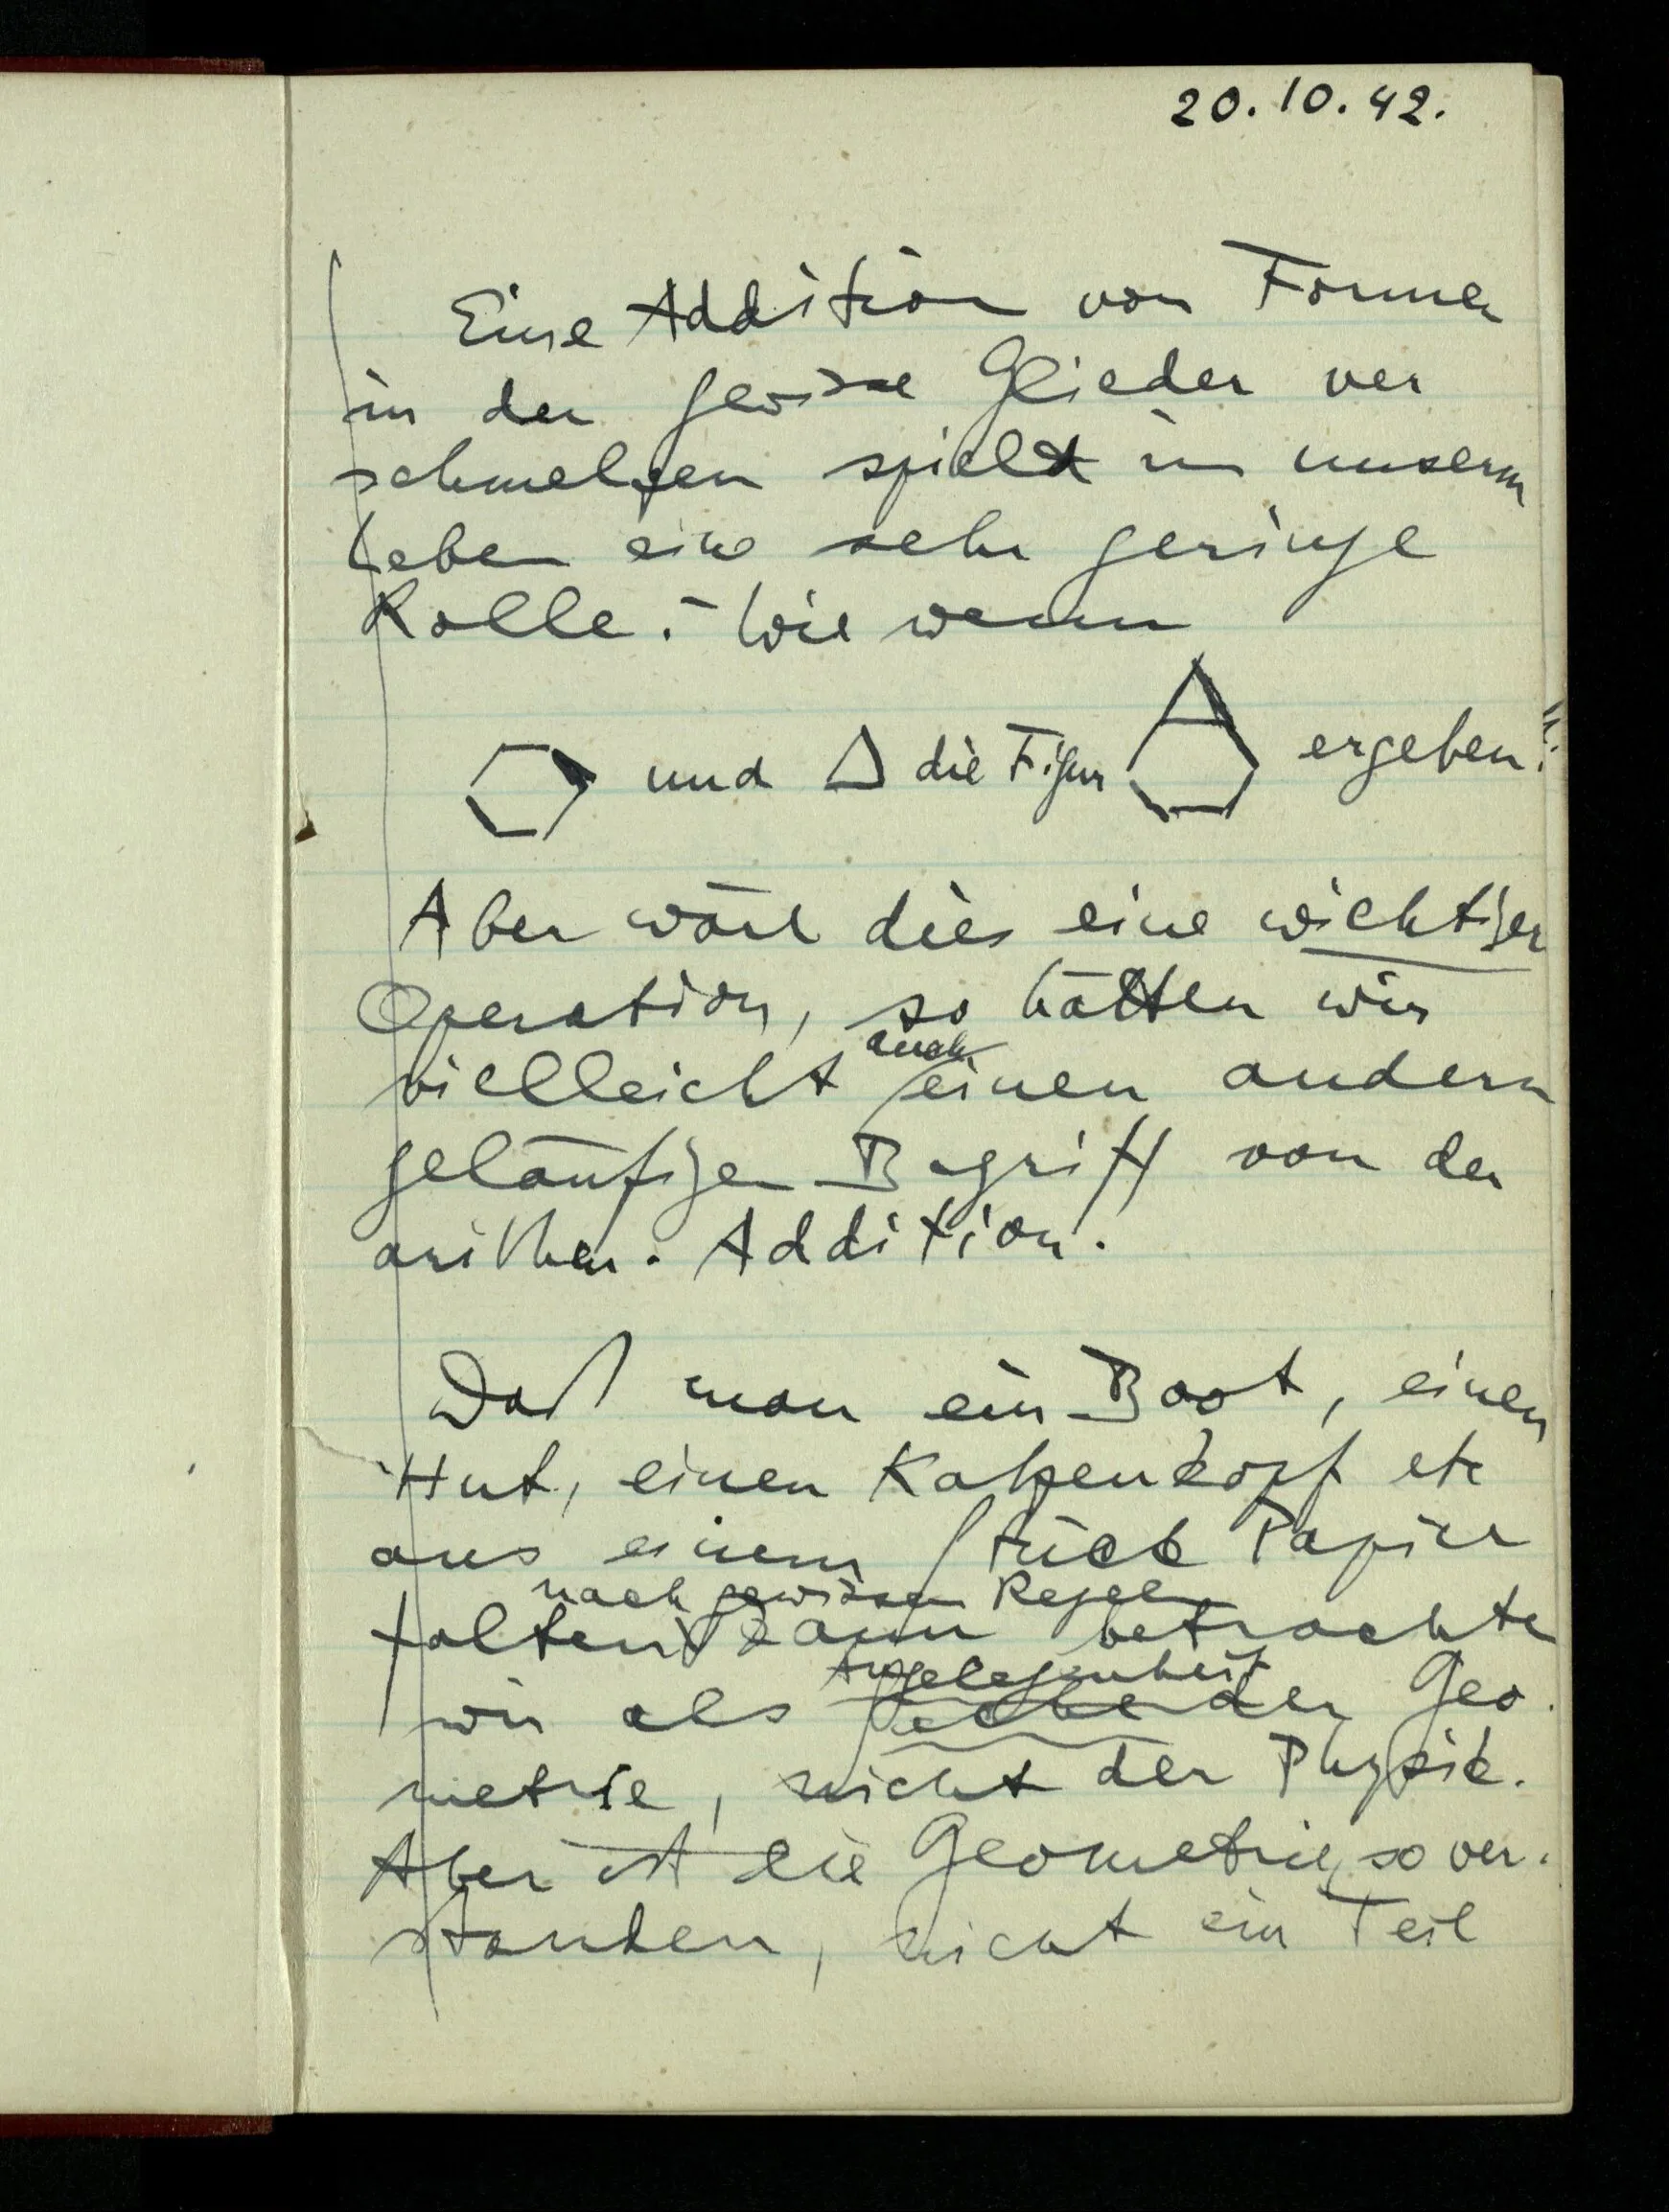 20.10.42.
Eine Addition von Formen
in der gewisse Glieder ver
schmelzen spielt in unserm
Leben eine sehr geringe
Rolle. – Wie wenn
und die Figur ergeben.
Aber wäre dies eine wichtige
Operation, so hätten wir
auch
vielleicht einen andern
geläufigen Begriff von der
arithm. Addition.
Daß man ein Boot, einen
Hut, einen Katzenkopf etc
aus einem Stück Papier
nach gewissen Regeln
falten kann betrachten
Angelegenheit
wir als der Geo
metrie, nicht der Physik.
Aber ist die Geometrie, so ver-
standen, nicht ein Teil